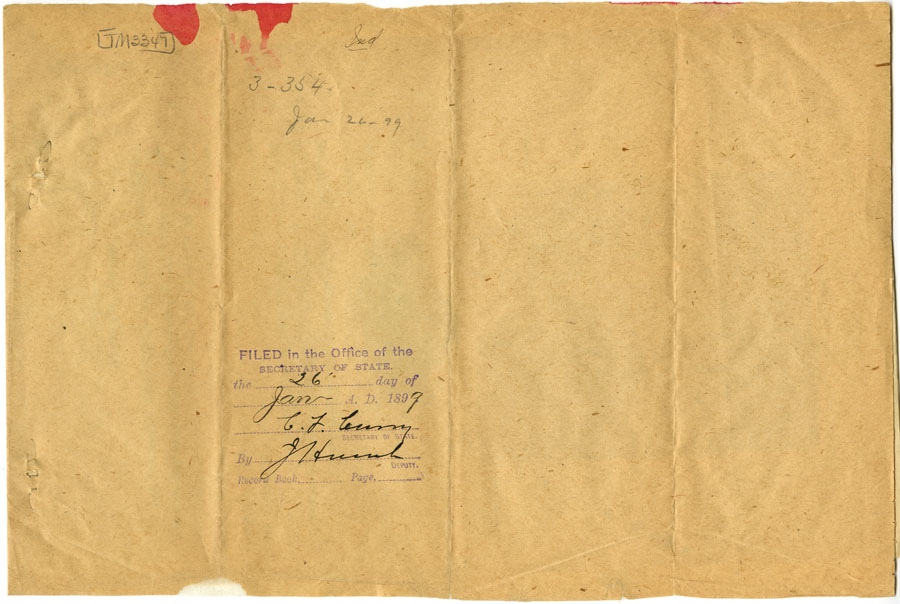 TM3347
Ind
3-354.
Jan 26-99
FILED in the Office of the
SECRETARY OF STATE.
the 26" day of
Jan- A. D. 1899
C. F. Curry
SECRETARY OF STATE.
By
DEPUTY.
Record Book, Page,